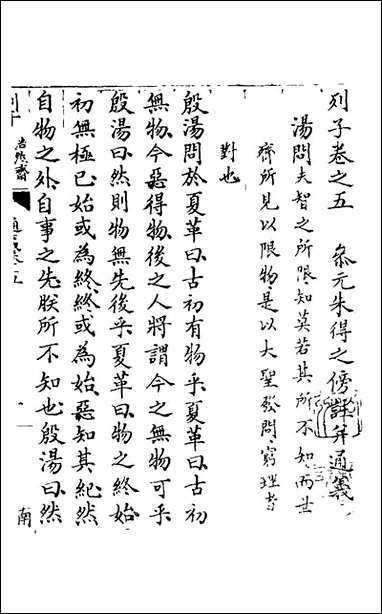 列子卷之五　　叅元朱得之傍註并通義
湯問夫智之所限知莫若其所不知而世
齊所見以限物是以大聖發問窮理者
對也
殷湯問於夏革曰古初有物乎夏革曰古初
無物今惡得物後之人將謂今之無物可乎
殷湯曰然則物無先後乎夏革曰物之終始
初無極已始或為終終或為始惡知其紀然
自物之外自事之先朕所不知也殷湯曰然
列子
浩然齋
通義卷五
一
南